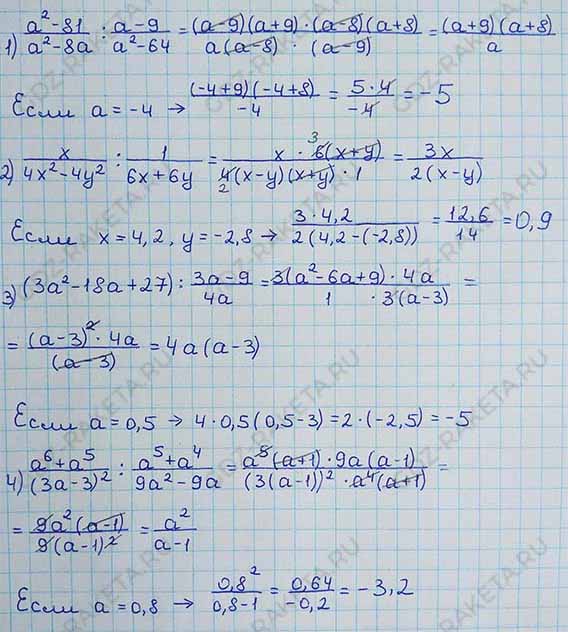 1) (a²-81)/(a²-8a) : (a-9)/(a²-64) = ((a-9)(a+9)·(a-8)(a+8))/(a(a-8)·(a-9)) = ((a+9)(a+8))/a
Если a = -4 → ((-4+9)(-4+8))/(-4) = (5·4)/(-4) = -5
2) x/(4x²-4y²) : 1/(6x+6y) = (x·6(x+y))/(4(x-y)(x+y)·1) = 3x/(2(x-y))
3
2
Если x=4,2, y=-2,8 → (3·4,2)/(2(4,2-(-2,8))) = 12,6/14 = 0,9
3) (3a²-18a+27) : (3a-9)/(4a) = (3(a²-6a+9)·4a)/(1·3(a-3)) =
= ((a-3)²·4a)/(a-3) = 4a(a-3)
Если a=0,5 → 4·0,5(0,5-3)=2·(-2,5)=-5
4) (a⁶+a⁵)/((3a-3)²) : (a⁵+a⁴)/(9a²-9a) = (a⁵(a+1)·9a(a-1))/((3(a-1))²·a⁴(a+1)) =
= (9a²(a-1))/(9(a-1)²) = a²/(a-1)
Если a=0,8 → 0,8²/(0,8-1) = 0,64/(-0,2) = -3,2
GDZ-RAKETA.RU